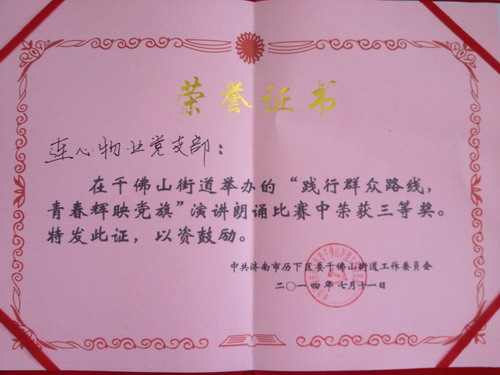 荣誉证书
连心物业党支部：
在千佛山街道举办的“践行群众路线，
青春辉映党旗”演讲朗诵比赛中荣获三等奖。
特发此证，以资鼓励。
中共济南市历下区委千佛山街道工作委员会
二〇一四年七月十一日